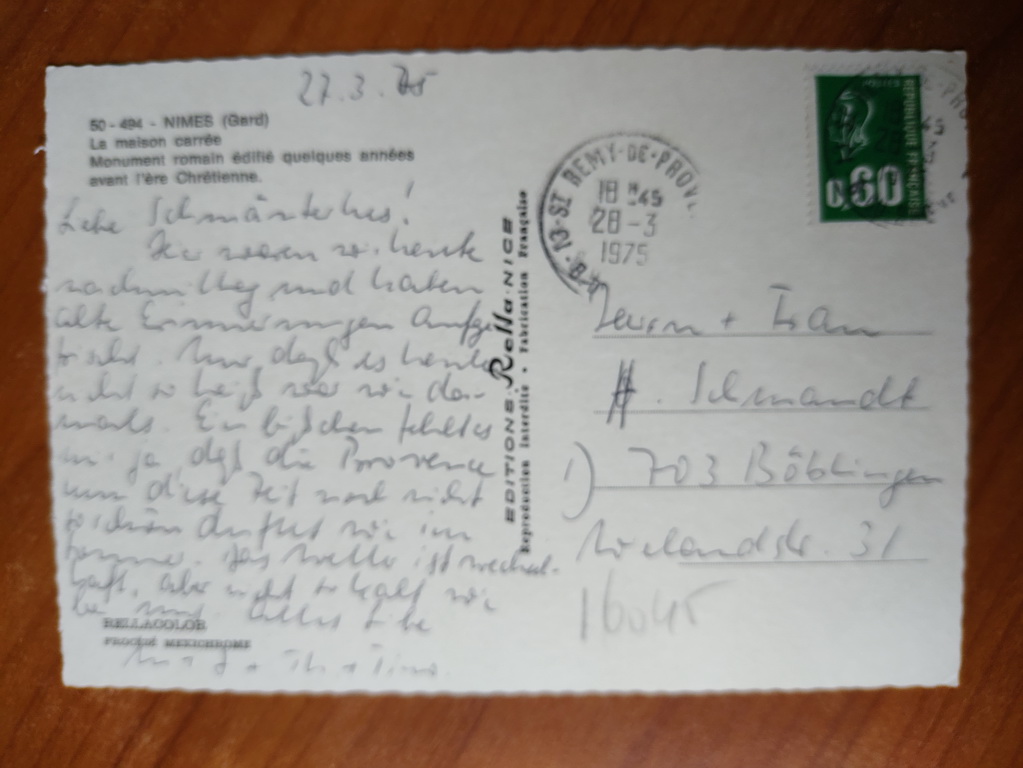 27.3.75
50-494 - NIMES (Gard)
La maison carrée
Monument romain édifié quelques années
avant l'ère Chrétienne.
Liebe
waren wir heute
nachmittag und haben
alte Erinnerungen aufge-
frischt. Nur, daß es heute
nicht so heiß war wie da-
mals. Ein bißchen fehlt es
mir ja, daß die Provence
um diese Zeit noch nicht
so schön duftet wie im
Sommer. Das Wetter ist wechsel-
haft, aber nicht so kalt wie
bei uns. Alles Liebe
RELLACOLOR
PROCÉDÉ MEXICHROME
EDITIONS Rella NICE
Reproduction Interdite • Fabrication Française
13-ST REMY-DE-PROV
18 H 45
28-3
1975
REPUBLIQUE FRANÇAISE
0,60
Herrn + Frau
H. Schmandt
703 Böblingen
Wielandstr. 31
16045